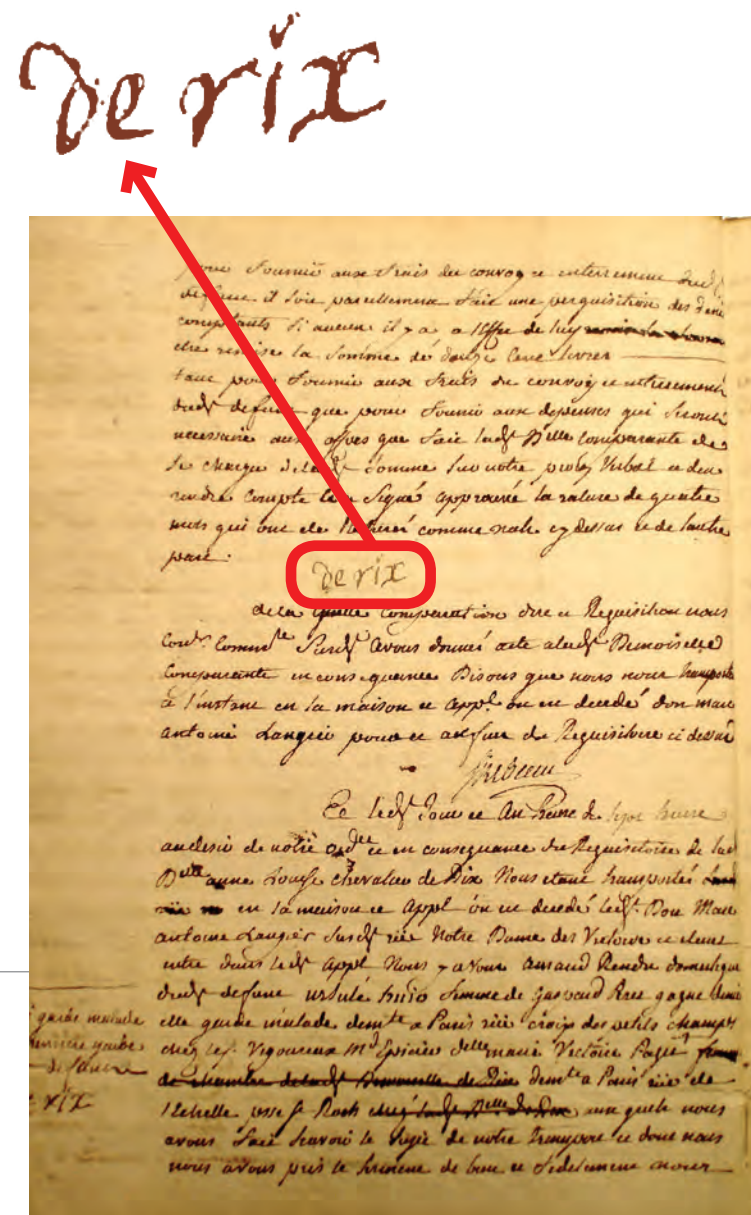 de rix
pour fournir aux frais du convoy et enterrement dud
deffunt il soit pareillement fait une perquisition des deniers
comptants si aucun il y a a l'effet de luy
etre remise la somme de douze cent livres
tant pour fournir aux frais du convoy et enterrement
dud deffunt que pour fournir aux depenses qui seront
necessaire aux offres que fait lad Dlle comparante de
se charger de lad somme sur notre procez verbal et den
rendre compte et a signé approuvé la rature de quatre
mots qui ont ete comme nuls cy dessus et de lautre
part.
de rix
de la quelle comparution dire et Requisition nous
Conr Commre susd avons donné acte a lad Demoiselle
Comparante en consequence Disons que nous nous transporté
à l'instant en la maison et appt ou est decedé don marc
antoine Langier pour et aux fins du Requisitoire ci dessus
Et led jour et an heure de
au desir de notre ordce et en consequance du Requisitoire de lad
Dlle anne Louise chevalier de Rix Nous etant transportés
en la maison et appt ou est decedé led. Don Marc
antoine Langier susd rüe Notre Dame des Victoires et etant
entré dans led appt Nous y avons
dud deffunt ursule femme de Gaspard gagne denier
elle garde malade demte a Paris rüe croix des petits champs
chez le Sr. Vigoureux Md Epicier Dlle marie Victoire femme
de chambre de lad Demoiselle de Rix demte a Paris rüe de
l'echelle psse St Roch chez lad Dlle de Rix aux quels nous
avons fait scavoir le sujet de notre transport et dont nous
nous avons pris le serment de bien et fidelement
garde malade
garde
deffunt
rix